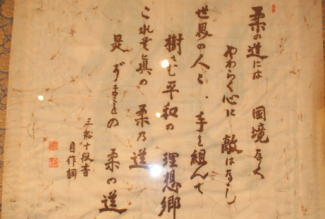 柔の道には 国境なく
やわらく心に 敵はなし
世界の人と 手を組んで
樹てむ平和の 理想郷
これぞ真の 柔乃道
是ぞまことの 柔の道
三船十段書
自作詞